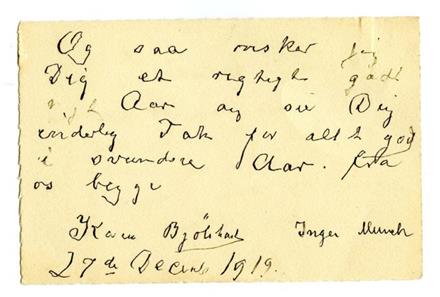 Og saa ønsker jeg
Dig et rigtigt godt
nyt Aar og sier Dig
inderlig Tak for alt godt
i svundene Aar. fra
os begge
Karen Bjölstad Inger Munch
27de Decemb 1919.